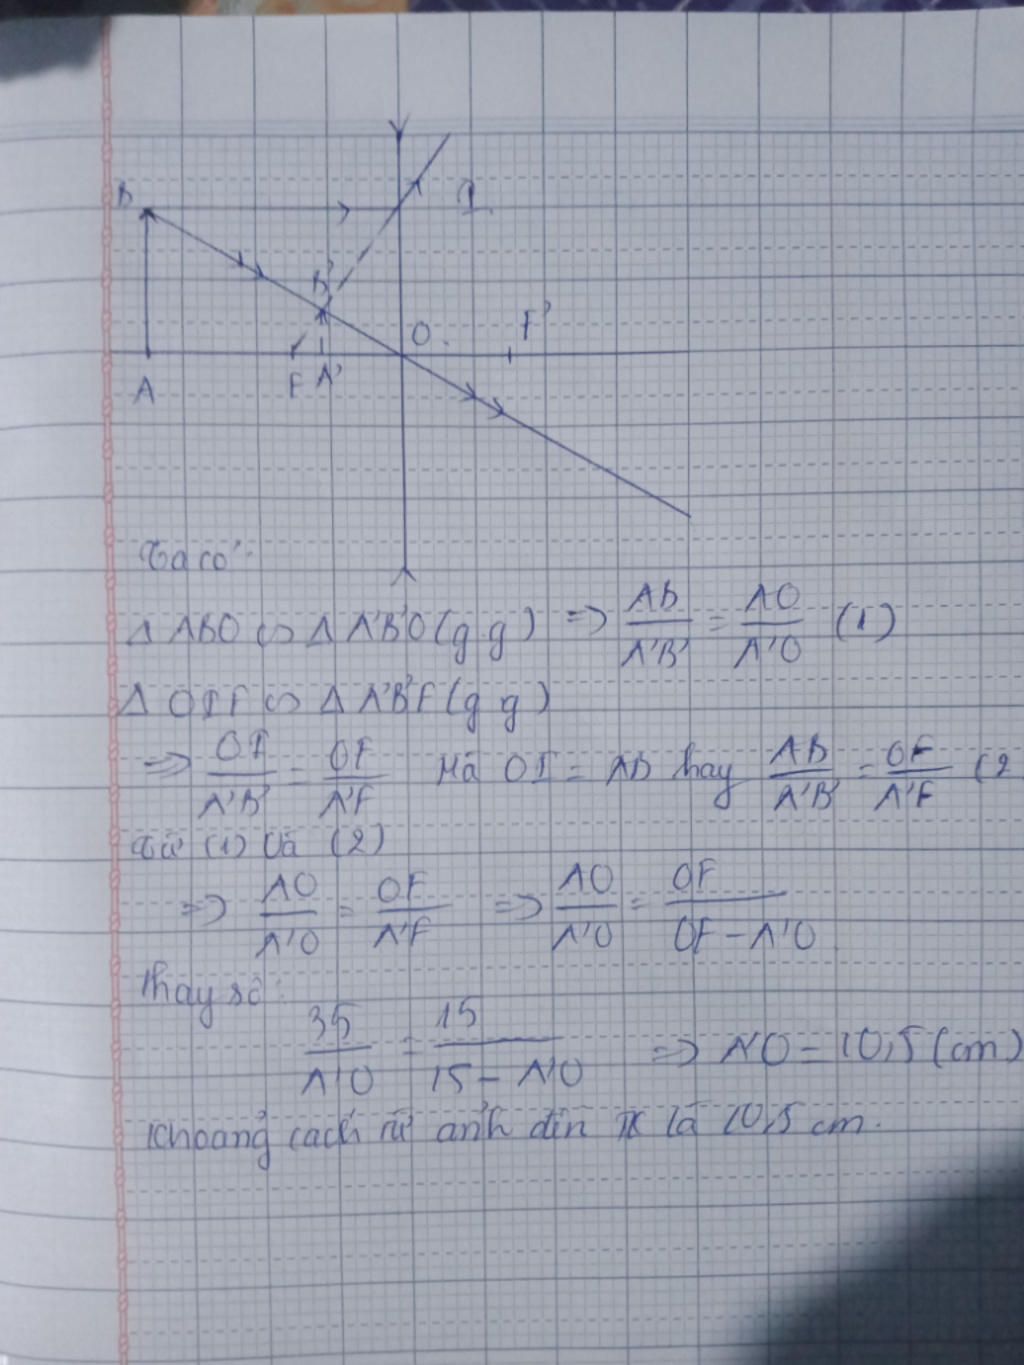 B
I
B'
O
F'
A
F
A'
Ta có:
Δ ABO ∽ Δ A'B'O (g.g) => AB/A'B' = AO/A'O (1)
Δ OIF ∽ Δ A'B'F (g.g)
=> OI/A'B' = OF/A'F Mà OI = AB hay AB/A'B' = OF/A'F (2
Từ (1) và (2)
=> AO/A'O = OF/A'F => AO/A'O = OF/OF - A'O
Thay số:
35/A'O = 15/15 - A'O => A'O = 10,5 (cm)
Khoảng cách từ ảnh đến TK là 10,5 cm.